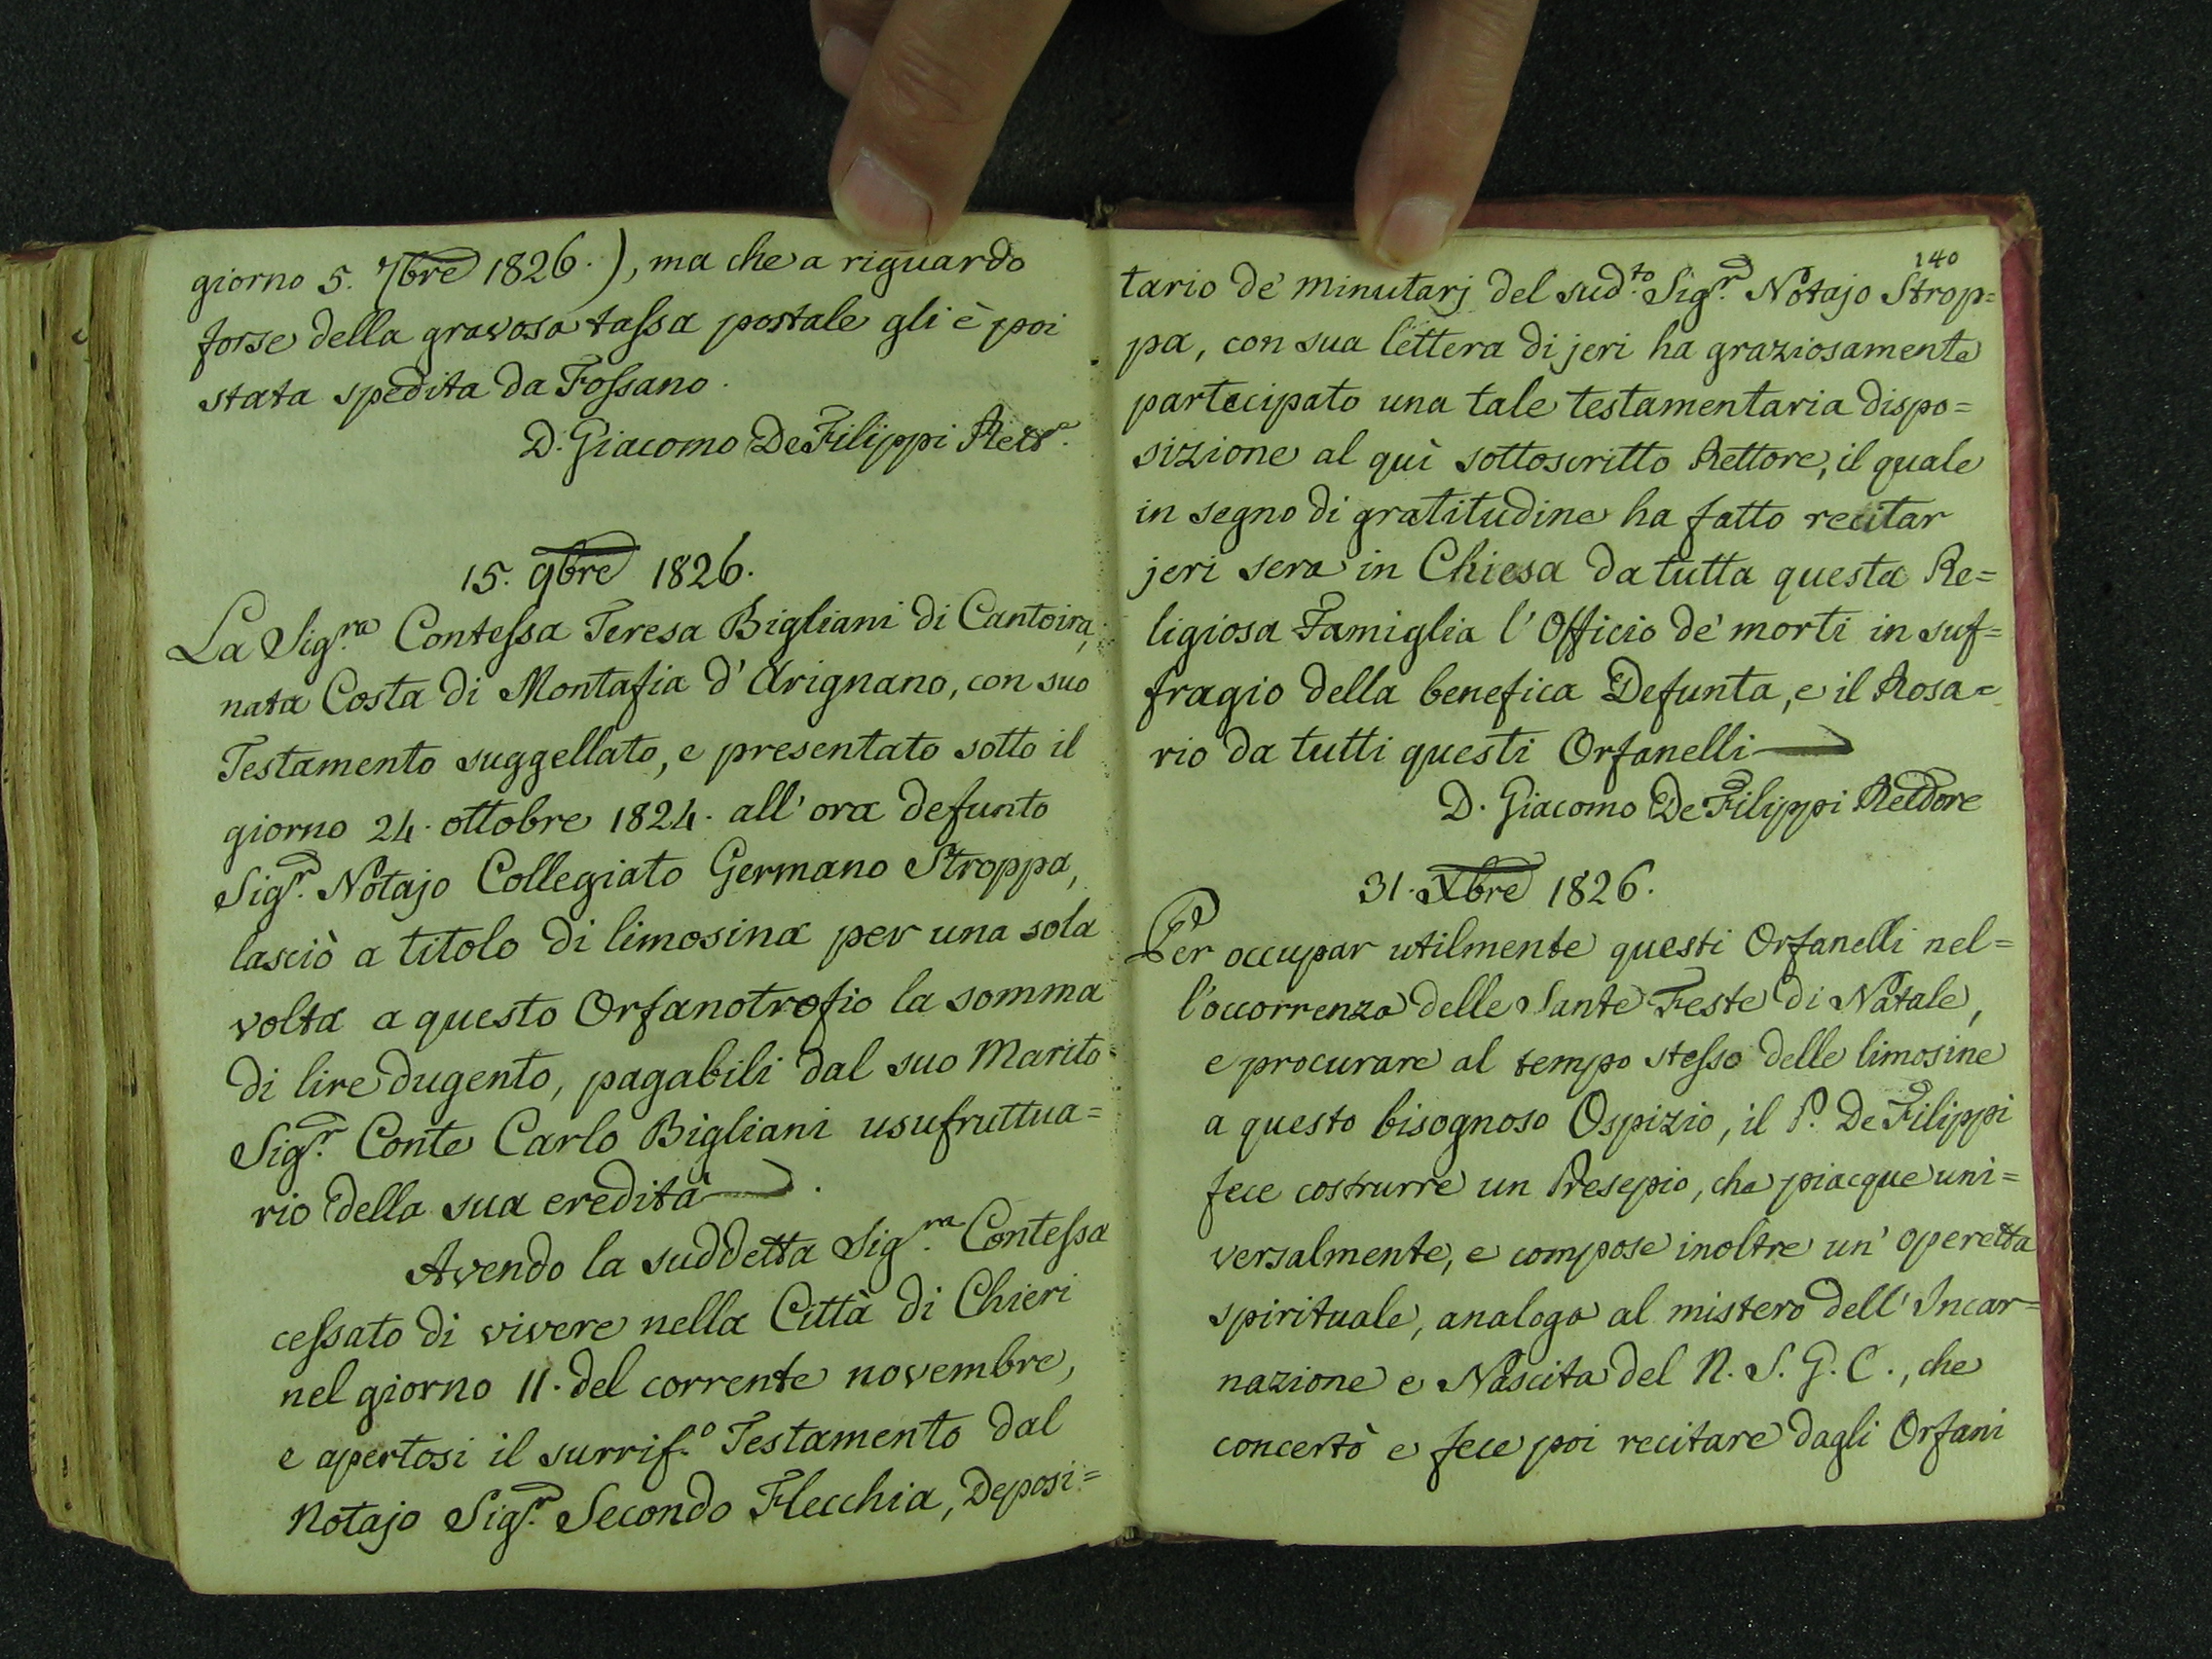 giorno 5. 7bre 1826.), ma che a riguardo
forse della gravosa tassa postale gli è poi
stata spedita da Fossano.
D. Giacomo De Filippi Rett.e
15. 9bre 1826.
La Sig.ra Contessa Teresa Bigliani di Cantoira,
nata Costa di Montafia d'Arignano, con suo
Testamento suggellato, e presentato sotto il
giorno 24. ottobre 1824. all'ora defunto
Sig.r Notajo Collegiato Germano Stroppa,
lasciò a titolo di limosina per una sola
volta a questo Orfanotrofio la somma
di lire dugento, pagabili dal suo Marito
Sig.r Conte Carlo Bigliani usufruttua=
rio della sua eredità.
Avendo la suddetta Sig.ra Contessa
cessato di vivere nella Città di Chieri
nel giorno 11. del corrente novembre,
e apertosi il surrif.o Testamento dal
Notajo Sig.r Secondo Flecchia, Deposi=
140
tario de' minutarj del sud.to Sig.r Notajo Strop=
pa, con sua lettera di jeri ha graziosamente
partecipato una tale testamentaria dispo=
sizione al quì sottoscritto Rettore, il quale
in segno di gratitudine ha fatto recitar
jeri sera in Chiesa da tutta questa Re=
ligiosa Famiglia l'Officio de' morti in suf=
fragio della benefica Defunta, e il Rosa=
rio da tutti questi Orfanelli
D. Giacomo De Filippi Rettore
31. Xbre 1826.
Per occupar utilmente questi Orfanelli nel=
l'occorrenza delle Sante Feste di Natale,
e procurare al tempo stesso delle limosine
a questo bisognoso Ospizio, il P. De Filippi
fece costrurre un Presepio, che piacque uni=
versalmente, e compose inoltre un' operetta
spirituale, analoga al mistero dell' Incar=
nazione e Nascita del N. S. G. C., che
concertò e fece poi recitare dagli Orfani